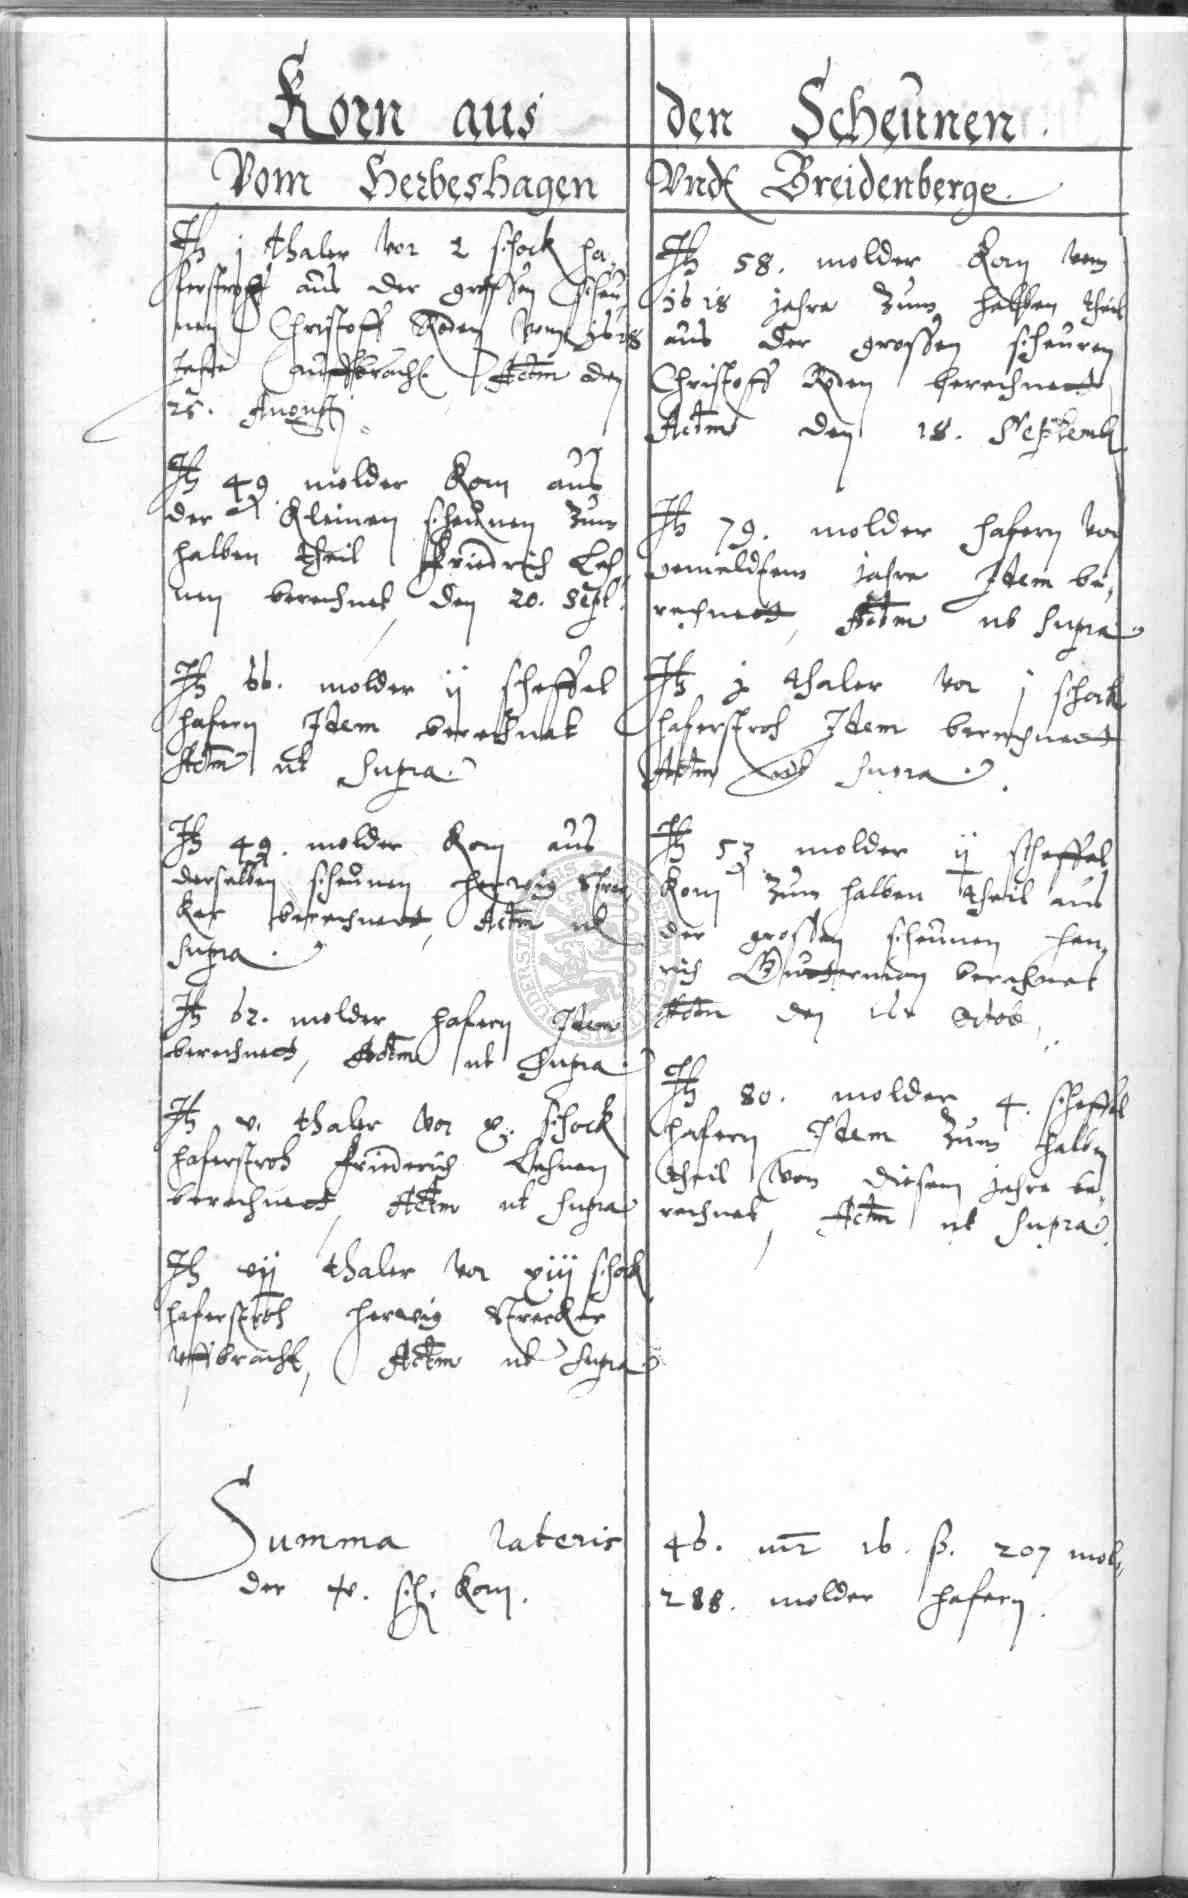 Korn aus den Scheunen.
Vom Herbeshagen Vnd Breidenberge.
It j thaler vor 2 schock ha-
ferstroh aus der grossen scheu-
nen Christoff Roden vom 1618
Jahre auffbracht Actm den
25. Augusti
It 49 molder Korn aus
der Kleinen scheunen zum
halben theil Friedrich Leh-
nen berechnet, den 20. Sept.
It 66. molder ij scheffel
hafern Idem berechnet
Actm ut supra.
It 49. molder Korn aus
derselben scheunen Herwig Strec-
ker berechnett, Actm ut
supra.
It 62. molder hafern Idem
berechnett, Actm ut supra.
It v. thaler vor x. schock
haferstroh Friederich Lehnen
berechnett, Actm ut supra
It vij thaler vor xiiij schock
haferstroh Herwig Strecker
uffbracht, Actm ut supra
It 58. molder Korn vom
1618 jahre zum halben theil
aus der grossen scheuren
Christoff Roden berechnett
Actm den 18. Septemb
It 79. molder hafern von
gemeldtem jahre Idem be-
rechnett, Actm ut supra.
It j thaler vor j schock
haferstroh Idem berechnett
Actm ut supra.
It 53 molder ij scheffel
Korn zum halben theil aus
der grossen scheunen Hen-
rich Gutterman berechnet
Actm den Octob.
It 80. molder 4. scheffel
hafern Idem zum halben
theil von diesem jahre be-
rechnet, Actm ut supra.
Summa lateris 46. mr 16. ß. 207 mol-
der 4. sch. Korn. 288. molder hafern.